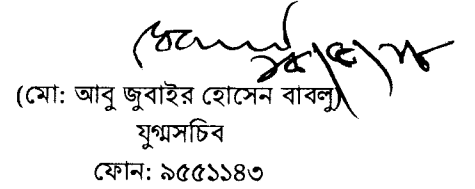 (মো: আবু জুবাইর হোসেন বাবলু)
যুগ্মসচিব
ফোন: ৯৫৫১১৪৩